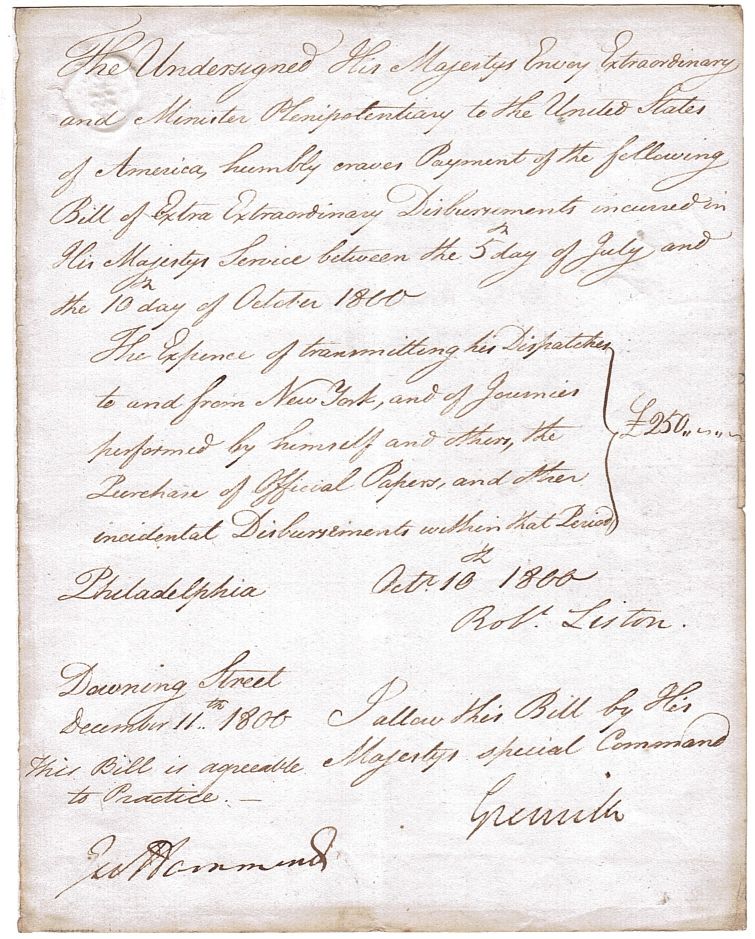 The Undersigned His Majestys Envoy Extraordinary
and Minister Plenipotentiary to the United States
of America, humbly craves Payment of the following
Bill of Extra Extraordinary Disbursements incurred in
His Majestys Service between the 5th day of July and
the 10th day of October 1800
The Expence of transmitting his Dispatches
to and from New York, and of Journies
performed by himself and others, the
Purchase of Official Papers, and other
incidental Disbursements within that Period
£250
Philadelphia Octr. 10th 1800
Robt. Liston.
Downing Street
December 11th 1800
This Bill is agreeable
to Practice.—
I allow this Bill by His
Majestys special Command
Grenville
Geo Hammond